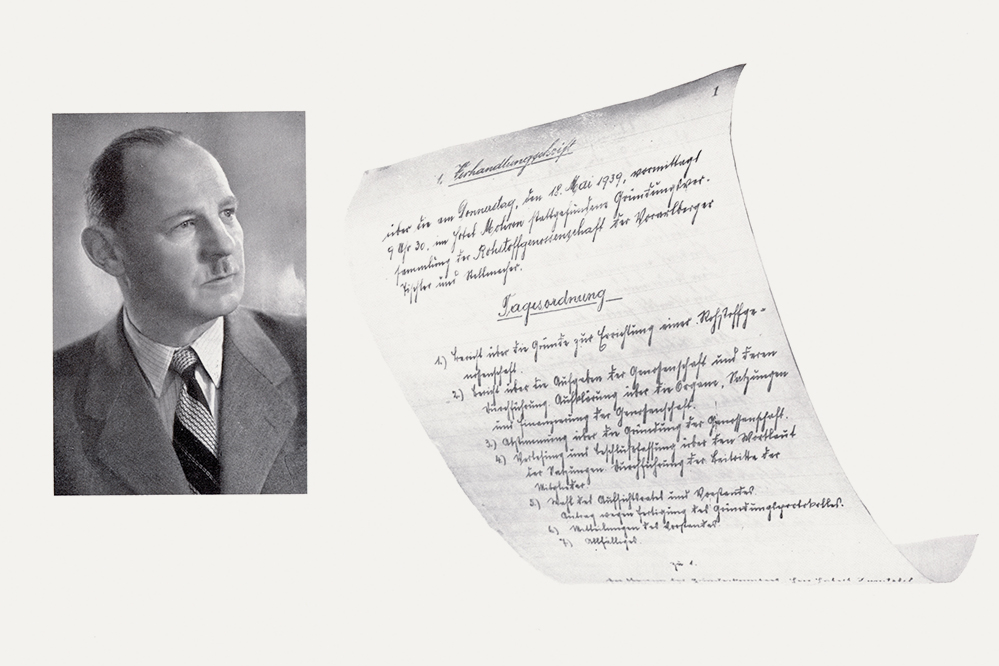 1
1. Verhandlungsschrift
über die am Donnerstag, den 18. Mai 1939, vormittags
9 Uhr 30, im Hotel Mohren stattgefundene Gründungsver-
sammlung der Rohstoffgenossenschaft der Vorarlberger
Tischler und Stellmacher.
Tagesordnung
1.) Bericht über die Gründe zur Errichtung einer Rohstoffge-
nossenschaft.
2.) Bericht über die Aufgaben der Genossenschaft und deren
Durchführung. Aufklärung über die Organe, Satzungen
und Finanzierung der Genossenschaft.
3.) Abstimmung über die Gründung der Genossenschaft.
4.) Verlesung und Beschlußfassung über den Wortlaut
der Satzungen. Durchführung der Beitritte der
Mitglieder.
5.) Wahl des Aufsichtsrates und Vorstandes.
Antrag wegen Fertigung des Gründungsprotokolles.
6.) Mitteilungen des Vorstandes.
7.) Allfälliges.
Zu 1.